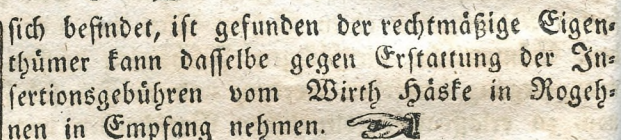 sich befindet, ist gefunden der rechtmäßige Eigen-
thümer kann dasselbe gegen Erstattung der In-
sertionsgebühren vom Wirth Häske in Rogeh-
nen in Empfang nehmen.